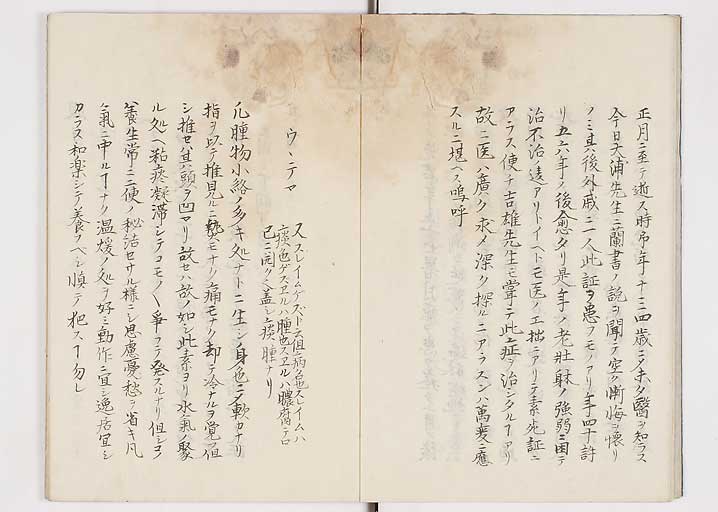 正月ニ至テ逝ス時年十三四歳ニ乄未タ醫ヲ知ラス
今日大浦先生ニ蘭書ノ説ヲ聞テ空ク慚悔ヲ懐ク
ノミ其後外戚ニ一人此証ヲ患フモノアリ年四十許
リ五六年ノ後愈タリ是年ノ老壯躰ノ強弱ニ因テ
治不治ノ違アリトイヘトモ医ノ工拙ニアリテ素ヨリ証ニ
アラス便チ吉雄先生モ嘗テ此症ヲ治シタルヿアリ
故ニ医ハ廣ク求メ深ク探ルニアラスンハ萬変ニ應
スルニ堪ヘス嗚呼
ウヽテマ
又スレイムゲスドモ云
痰也ゲスヱルハ腫也スヱルハ膿
已ニ同ク蓋シ痰腫ナリ
凡腫物小絡ノ多キ処ナトニ生シノ身色ニ乄軟カナリ
指ヲ以テ推見ルニ熱モナク痛モナク却テ冷ナルヲ覚但
シ推セハ其頭ヲ凹マリ放セハ故ノ如シ此素ヨリ水氣ノ聚
ル処ヘ粘痰凝滞シテコモ〱争フテ発スルナリ但シヨ
養生常ニ二便ノ秘結セサル様ニシ思慮憂愁ヲ省キ凡
氣ニ中ルヿナク温煖ノ処ヲ好ミ動作ニ宜シ逸居宜シ
カラス和楽シテ養フヘシ慎テ犯スヿ勿レ